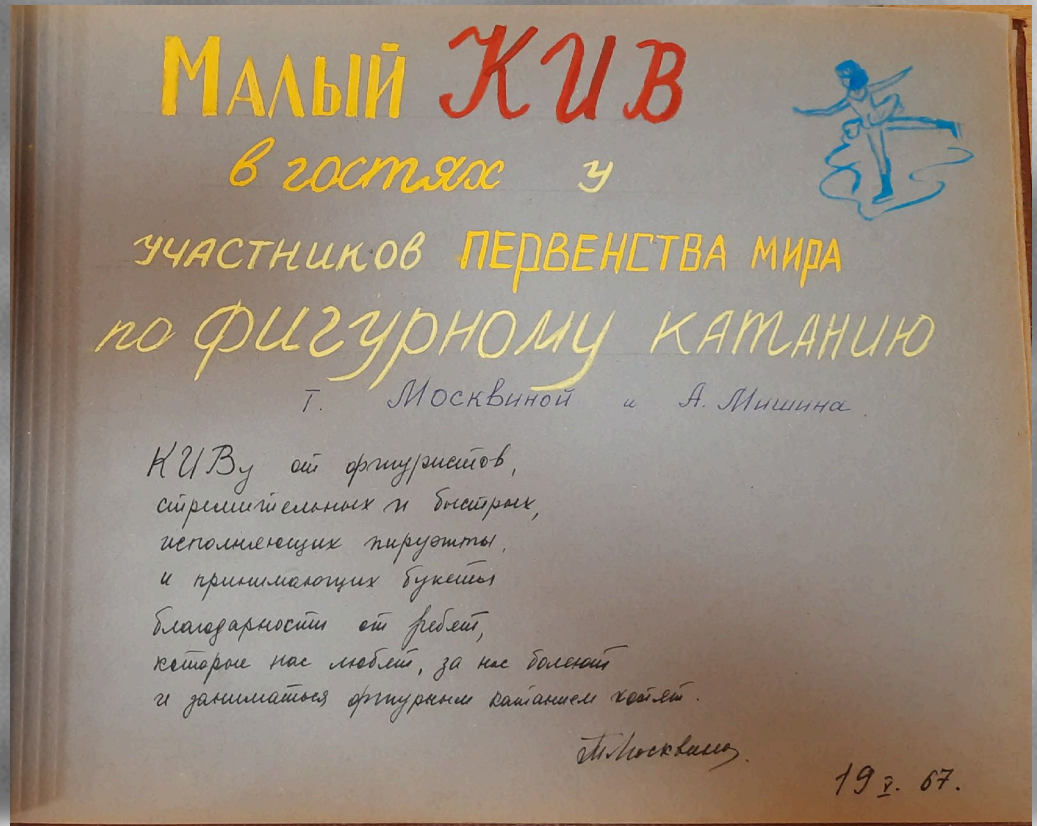 Малый КИВ
в гостях у
участников ПЕРВЕНСТВА МИРА
по фигурному катанию
Т. Москвиной и А. Мишина.
КИВу от фигуристов,
стремительных и быстрых,
исполняющих пируэты,
и принимающих букеты
благодарности от ребят,
которые нас любят, за нас болеют
и заниматься фигурным катанием хотят.
ТМосквина.
19 V. 67.